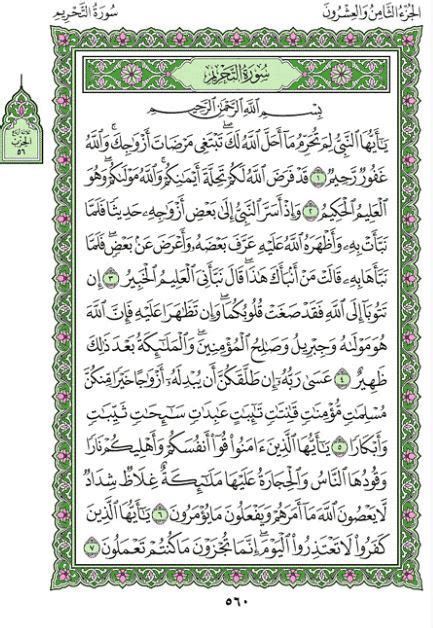 الجزء الثامن والعشرون
سورة التحريم
سُورَةُ التَّحْرِيمِ
بِسْمِ اللَّهِ الرَّحْمَٰنِ الرَّحِيمِ
يَٰٓأَيُّهَا ٱلنَّبِيُّ لِمَ تُحَرِّمُ مَآ أَحَلَّ ٱللَّهُ لَكَ ۖ تَبْتَغِي مَرْضَاتَ أَزْوَٰجِكَ ۚ وَٱللَّهُ
غَفُورٌ رَّحِيمٌ ١ قَدْ فَرَضَ ٱللَّهُ لَكُمْ تَحِلَّةَ أَيْمَٰنِكُمْ ۚ وَٱللَّهُ مَوْلَىٰكُمْ ۖ وَهُوَ
ٱلْعَلِيمُ ٱلْحَكِيمُ ٢ وَإِذْ أَسَرَّ ٱلنَّبِيُّ إِلَىٰ بَعْضِ أَزْوَٰجِهِۦ حَدِيثًا فَلَمَّا
نَبَّأَتْ بِهِۦ وَأَظْهَرَهُ ٱللَّهُ عَلَيْهِ عَرَّفَ بَعْضَهُۥ وَأَعْرَضَ عَنۢ بَعْضٍ ۖ فَلَمَّا
نَبَّأَهَا بِهِۦ قَالَتْ مَنْ أَنۢبَأَكَ هَٰذَا ۖ قَالَ نَبَّأَنِيَ ٱلْعَلِيمُ ٱلْخَبِيرُ ٣ إِن
تَتُوبَآ إِلَى ٱللَّهِ فَقَدْ صَغَتْ قُلُوبُكُمَا ۖ وَإِن تَظَٰهَرَا عَلَيْهِ فَإِنَّ ٱللَّهَ
هُوَ مَوْلَىٰهُ وَجِبْرِيلُ وَصَٰلِحُ ٱلْمُؤْمِنِينَ ۖ وَٱلْمَلَٰٓئِكَةُ بَعْدَ ذَٰلِكَ
ظَهِيرٌ ٤ عَسَىٰ رَبُّهُۥٓ إِن طَلَّقَكُنَّ أَن يُبْدِلَهُۥٓ أَزْوَٰجًا خَيْرًا مِّنكُنَّ
مُسْلِمَٰتٍ مُّؤْمِنَٰتٍ قَٰنِتَٰتٍ تَٰٓئِبَٰتٍ عَٰبِدَٰتٍ سَٰٓئِحَٰتٍ ثَيِّبَٰتٍ
وَأَبْكَارًا ٥ يَٰٓأَيُّهَا ٱلَّذِينَ ءَامَنُوا۟ قُوٓا۟ أَنفُسَكُمْ وَأَهْلِيكُمْ نَارًا
وَقُودُهَا ٱلنَّاسُ وَٱلْحِجَارَةُ عَلَيْهَا مَلَٰٓئِكَةٌ غِلَاظٌ شِدَادٌ
لَّا يَعْصُونَ ٱللَّهَ مَآ أَمَرَهُمْ وَيَفْعَلُونَ مَا يُؤْمَرُونَ ٦ يَٰٓأَيُّهَا ٱلَّذِينَ
كَفَرُوا۟ لَا تَعْتَذِرُوا۟ ٱلْيَوْمَ ۖ إِنَّمَا تُجْزَوْنَ مَا كُنتُمْ تَعْمَلُونَ ٧
الحزب
٥٦
٥٦٠